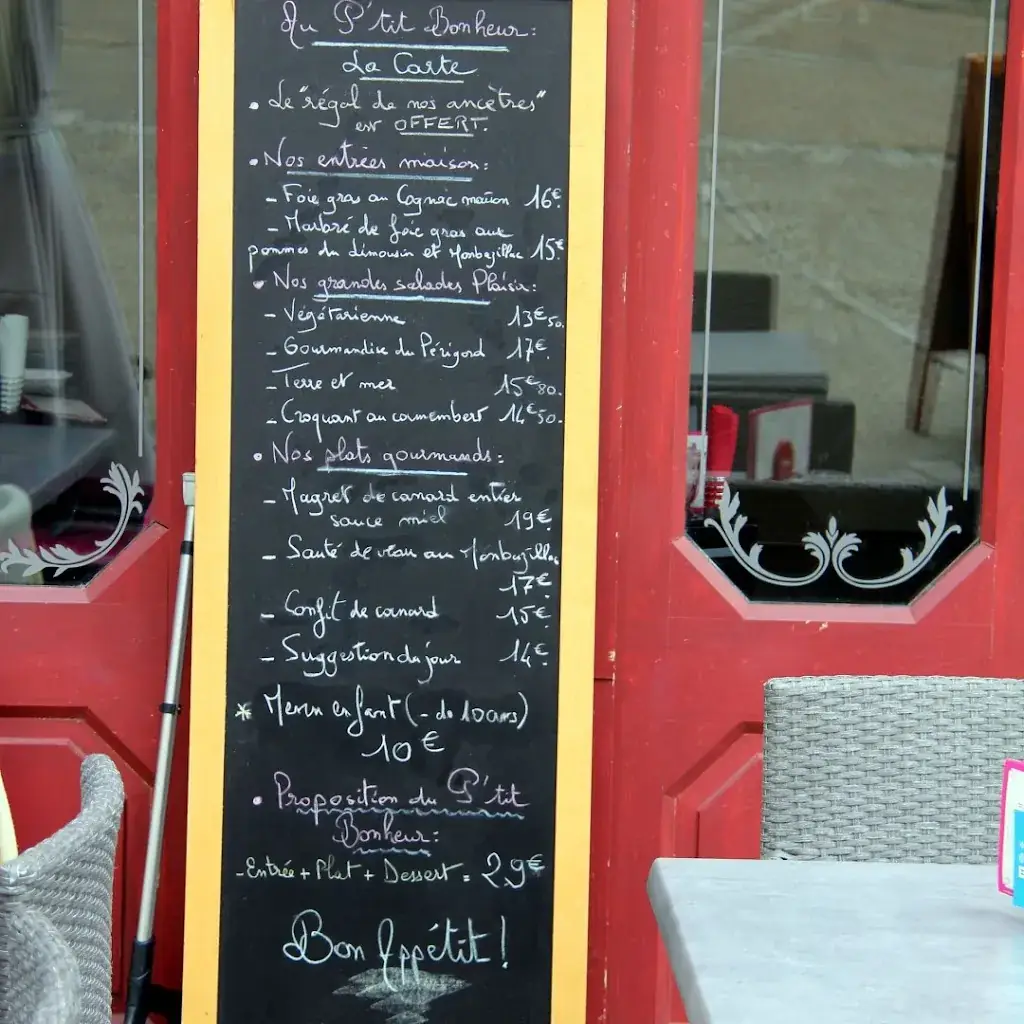 Au P'tit Bonheur:
La Carte
• Le "régal de nos ancètres"
est OFFERT.
• Nos entrées maison:
- Foie gras au Cognac maison 16€
- Marbré de foie gras aux
pommes du Limousin et Monbazillac 15€
• Nos grandes salades Plaisir:
- Végétarienne 13€50.
- Gourmandise du Périgord 17€.
- Terre et mer 15€80.
- Croquant au camembert 14€50.
• Nos plats gourmands:
- Magret de canard entier
sauce miel 19€.
- Sauté de veau au Monbazillac
17€.
- Confit de canard 15€.
- Suggestion du jour 14€.
* Menu enfant (- de 10 ans)
10€
• Proposition du P'tit
Bonheur:
- Entrée + Plat + Dessert = 29€
Bon Appétit!